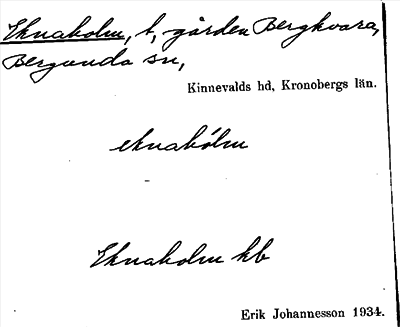 Eknaholm, t, gården Bergkvara,
Bergunda sn,
Kinnevalds hd, Kronobergs län.
eknahólm
Eknaholm hb
Erik Johannesson 1934.